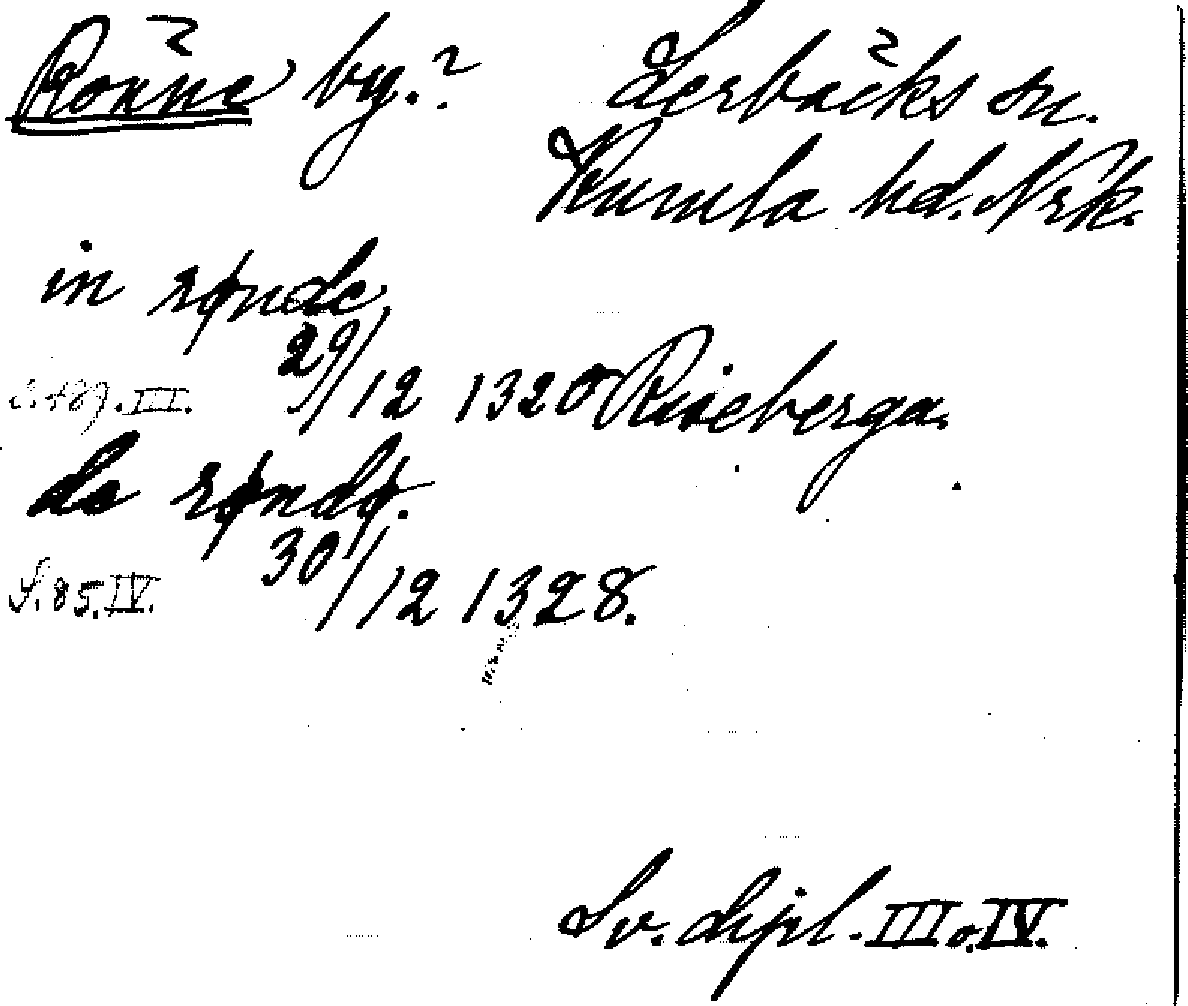 Rönne by.? Lerbäcks sn.
Kumla hd. Nrk.
in rønde
29/12 1320 Riseberga.
III.
de røndø.
30/12 1328.
S. 85. IV.
Sv. dipl. III o. IV.